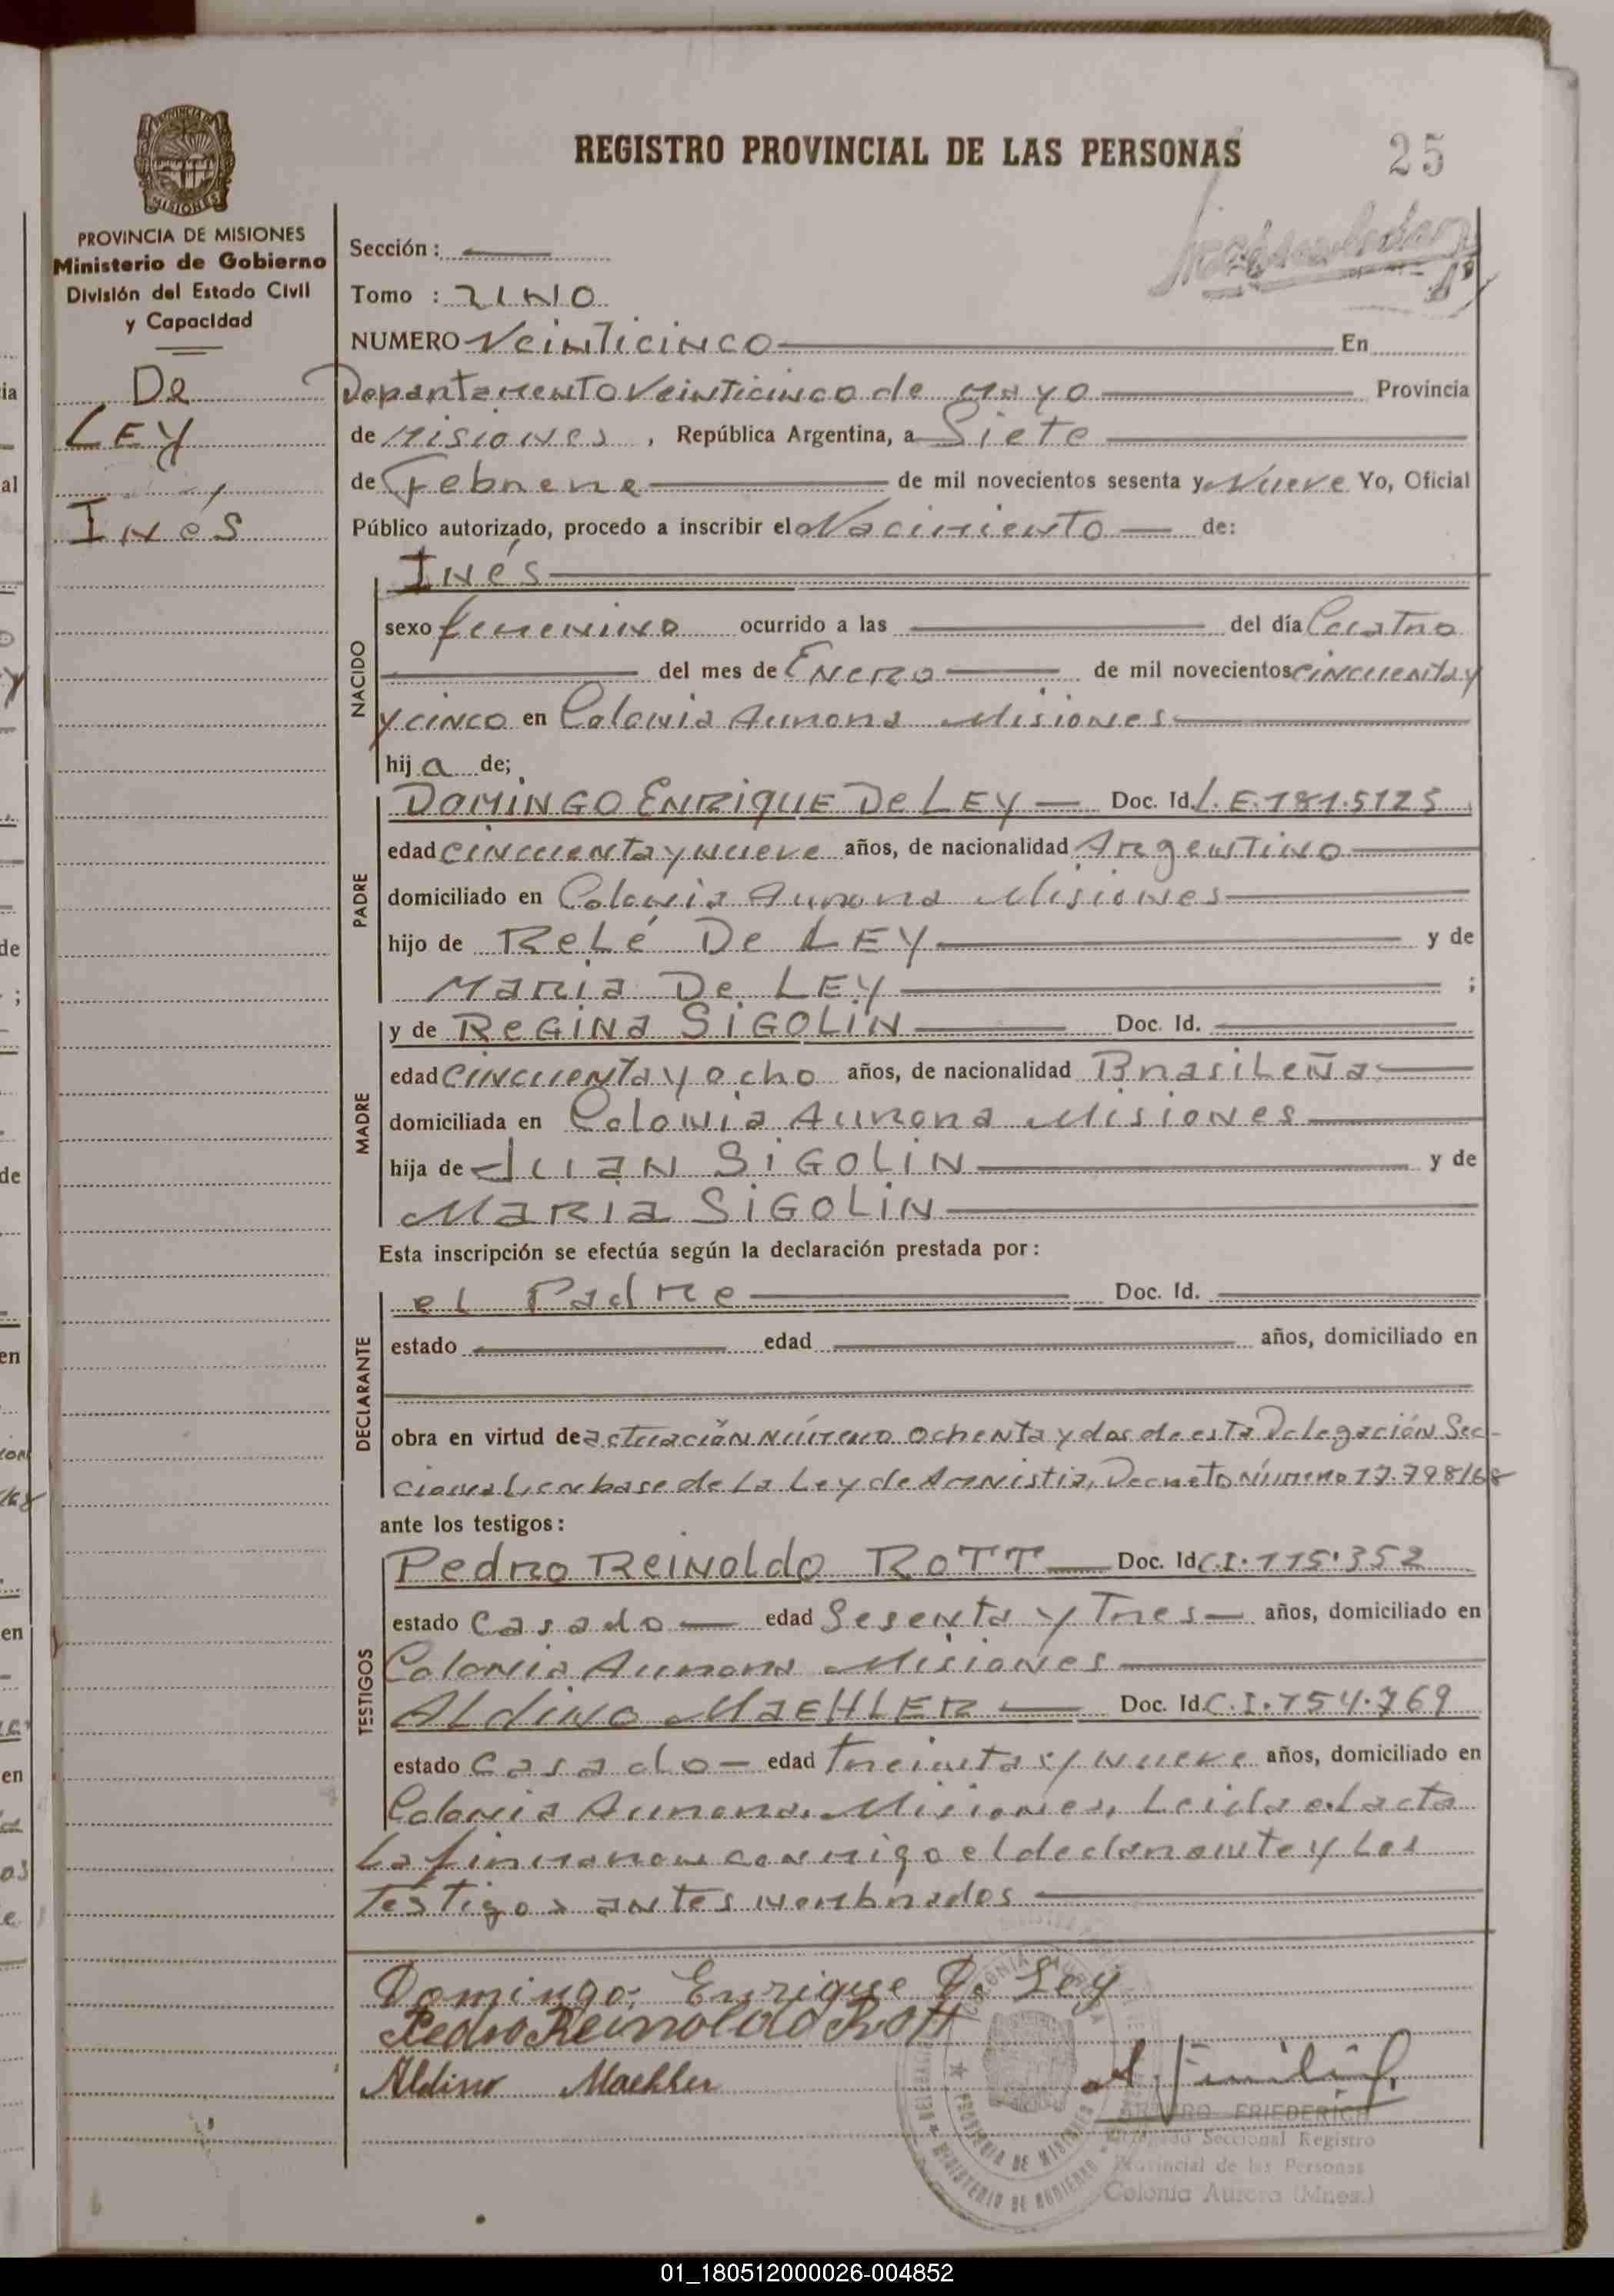 REGISTRO PROVINCIAL DE LAS PERSONAS
25
PROVINCIA DE MISIONES
Ministerio de Gobierno
División del Estado Civil
y Capacidad
De
LEY
Inés
Sección :
Tomo : UNO
NUMERO Veinticinco En
Departamento Veinticinco de Mayo Provincia
de Misiones , República Argentina, a Siete
de Febrero de mil novecientos sesenta y Nueve Yo, Oficial
Público autorizado, procedo a inscribir el Nacimiento de:
Inés
NACIDO
sexo femenino ocurrido a las del día Cuatro
del mes de Enero de mil novecientos cincuenta y
y cinco en Colonia Aurora Misiones
hij a de;
PADRE
DOMINGO ENRIQUE De LEY Doc. Id L.E.181.5125
edad cincuenta y nueve años, de nacionalidad Argentino
domiciliado en Colonia Aurora Misiones
hijo de Relé De LEY y de
Maria De LEY ;
MADRE
y de REGINA SIGOLIN Doc. Id.
edad cincuenta y ocho años, de nacionalidad Brasileña
domiciliada en Colonia Aurora Misiones
hija de Juan SIGOLIN y de
MARIA SIGOLIN
Esta inscripción se efectúa según la declaración prestada por :
DECLARANTE
el Padre Doc. Id.
estado edad años, domiciliado en
obra en virtud de actuación número ochenta y dos de esta Delegación Sec-
cional, en base de La Ley de Amnistia, Decreto Número 17.798/68
ante los testigos :
TESTIGOS
Pedro Reinoldo ROTT Doc. Id C.I. 115.352
estado Casado edad Sesenta y Tres años, domiciliado en
Colonia Aurora Misiones
ALdino MAEHLER Doc. Id. C.I. 154.769
estado Casado edad treinta y nueve años, domiciliado en
Colonia Aurora, Misiones, Leida el acta
La firmaron conmigo el declarante y Los
Testigos antes nombrados
Domingo Enrique De Ley
Pedro Reinoldo Rott
Aldino Maehler
ARTURO FRIEDERICH
Delegado Seccional Registro
Provincial de las Personas
Colonia Aurora (Mnes.)
COLONIA AURORA
PROVINCIA DE MISIONES
MINISTERIO DE GOBIERNO
01_180512000026-004852